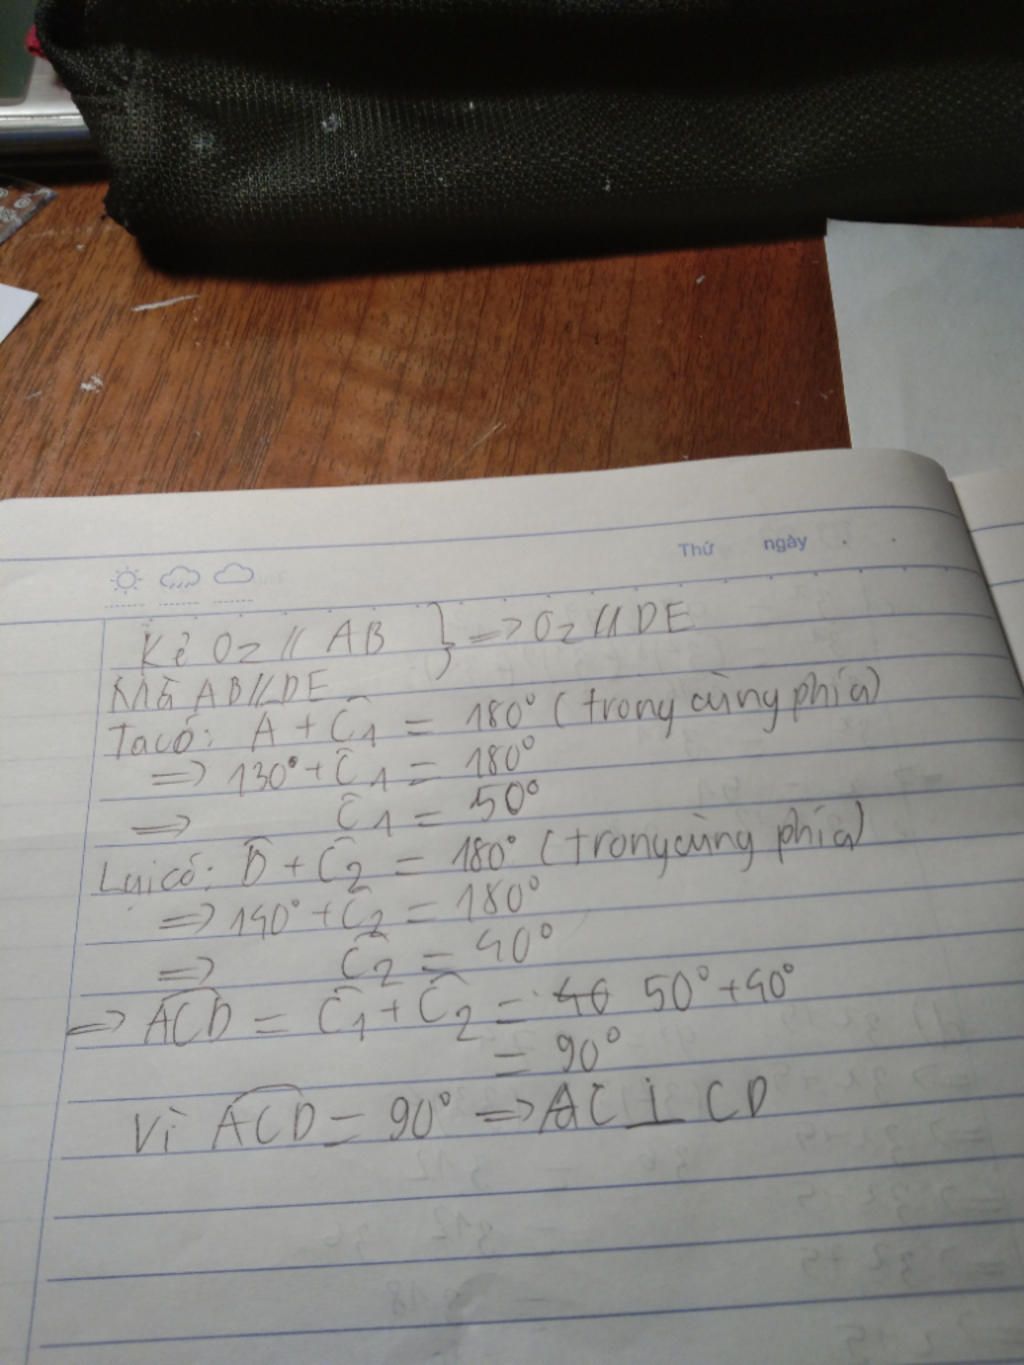 Thứ ngày
Kẻ Oz // AB } => Oz // DE
Mà AB // DE
Ta có: A + Ĉ1 = 180° (trong cùng phía)
=> 130° + Ĉ1 = 180°
=> Ĉ1 = 50°
Lại có: D̂ + Ĉ2 = 180° (trong cùng phía)
=> 140° + Ĉ2 = 180°
=> Ĉ2 = 40°
=> ACD = Ĉ1 + Ĉ2 = 50° + 40°
= 90°
Vì ACD = 90° => AC ⊥ CD